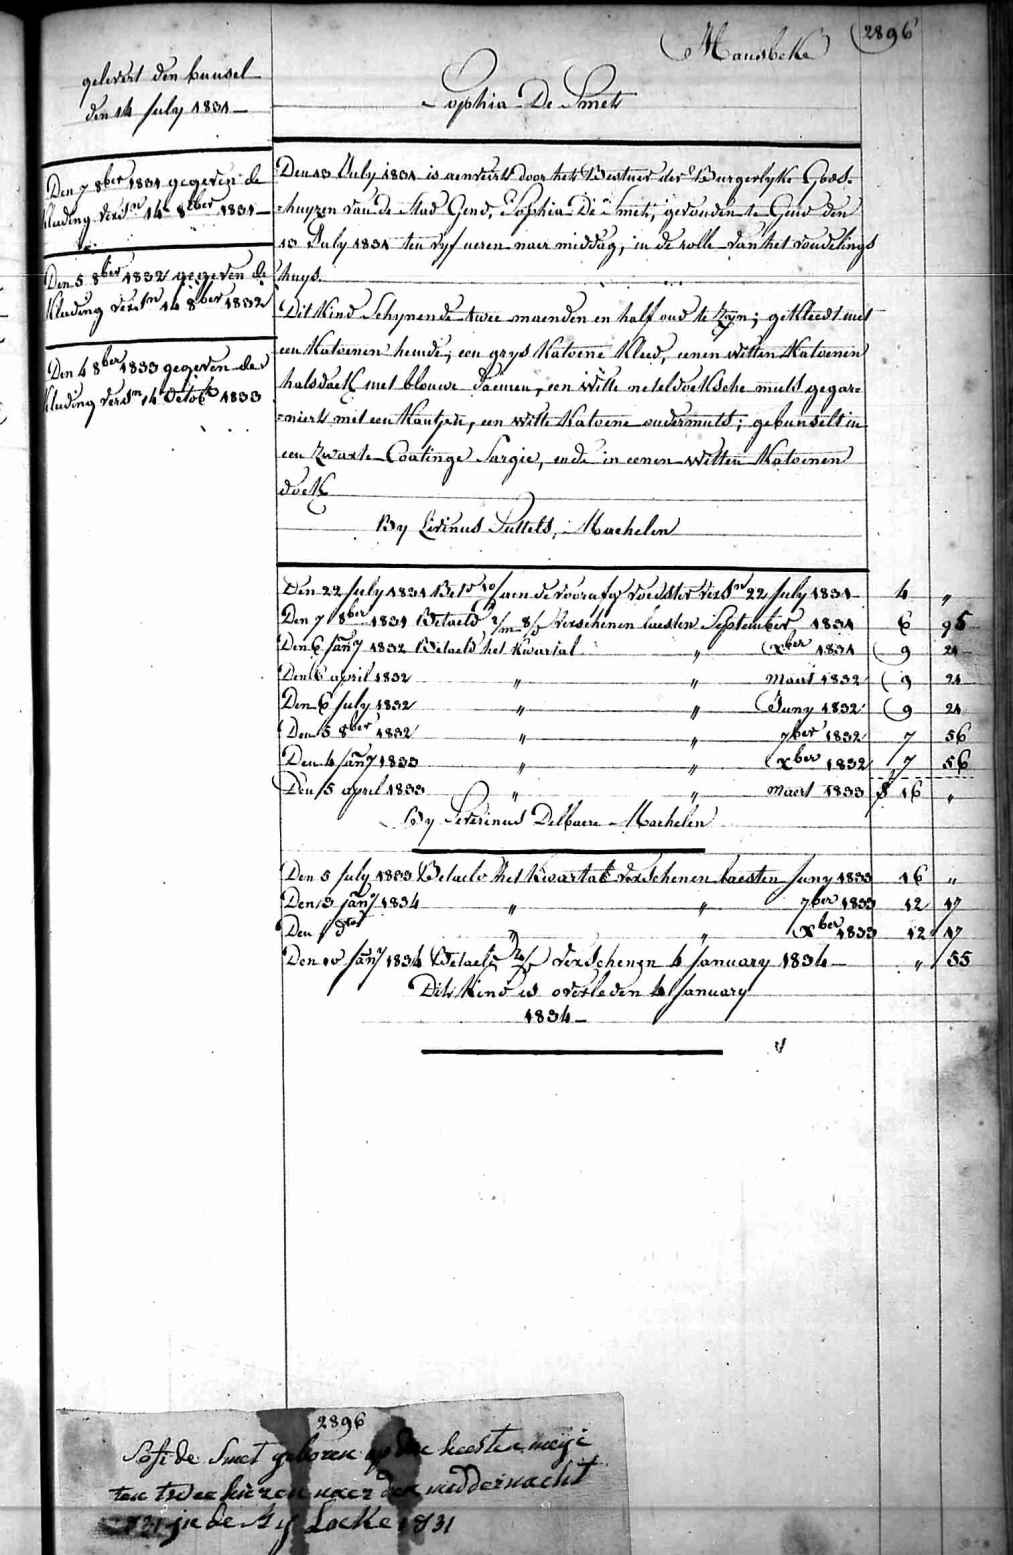 2896
Mansbeke
Sophia De Smet
gelevert den bunsel
den 14 July 1831
Den 7 8ber 1831 gegeven de
kleding versn 14 8ber 1831
Den 5 8ber 1832 gegeven de
kleding versn 14 8ber 1832
Den 4 8ber 1833 gegeven de
kleding versn 14 Octob 1833
Den 13 July 1831 is aenveert door het Bestuer der Burgerlyke Gods-
-huyzen van de Stad Gend, Sophia De Smet, gevonden te Gend den
13 July 1831 ten vyf ueren naer middag, in de rolle van het vondelings
huys.
Dit Kind Schynende twee maenden en half oud te zyn; gekleedt met
een Katoenen hemde, een grys Katoene Kleed, eenen witten Katoenen
halsdoek met blouwe, een witte neteldoeksche muts gegar-
-niert met een Kantjen, een witte Katoene ondermuts; gebunselt in
een zwarte Coatinge Sargie, ende in eenen witten Katoenen
doek
By Livinus, Machelen
Den 22 July 1831 aen de voorafg voedster versn 22 July 1831 4 "
Den 7 8ber 1831 Betaeld 2/m 8/d Verschenen laesten September 1831 6 95
Den 6 Jany 1832 Betaeld het Kwartal " Xber 1831 9 24
Den 6 april 1832 " " Maert 1832 9 24
Den 6 July 1832 " " Juny 1832 9 24
Den 5 8ber 1832 " " 7ber 1832 7 56
Den 4 Jany 1833 " " Xber 1832 7 56
Den 5 april 1833 " " Maert 1833 16 "
By Severinus Delbaere Machelen
Den 5 July 1833 Betaeld Het Kwartal verschenen laesten Juny 1833 16 "
Den 3 Jany 1834 " " 7ber 1833 12 17
Den dto " " Xber 1833 12 17
Den 10 Jany 1834 Betaeld verschenen 4 January 1834 " 55
Dit Kind is overleden 4 January
1834
2896
Sofi de Smet geboren op den meije
ten twee hueren naer den middernacht
1831